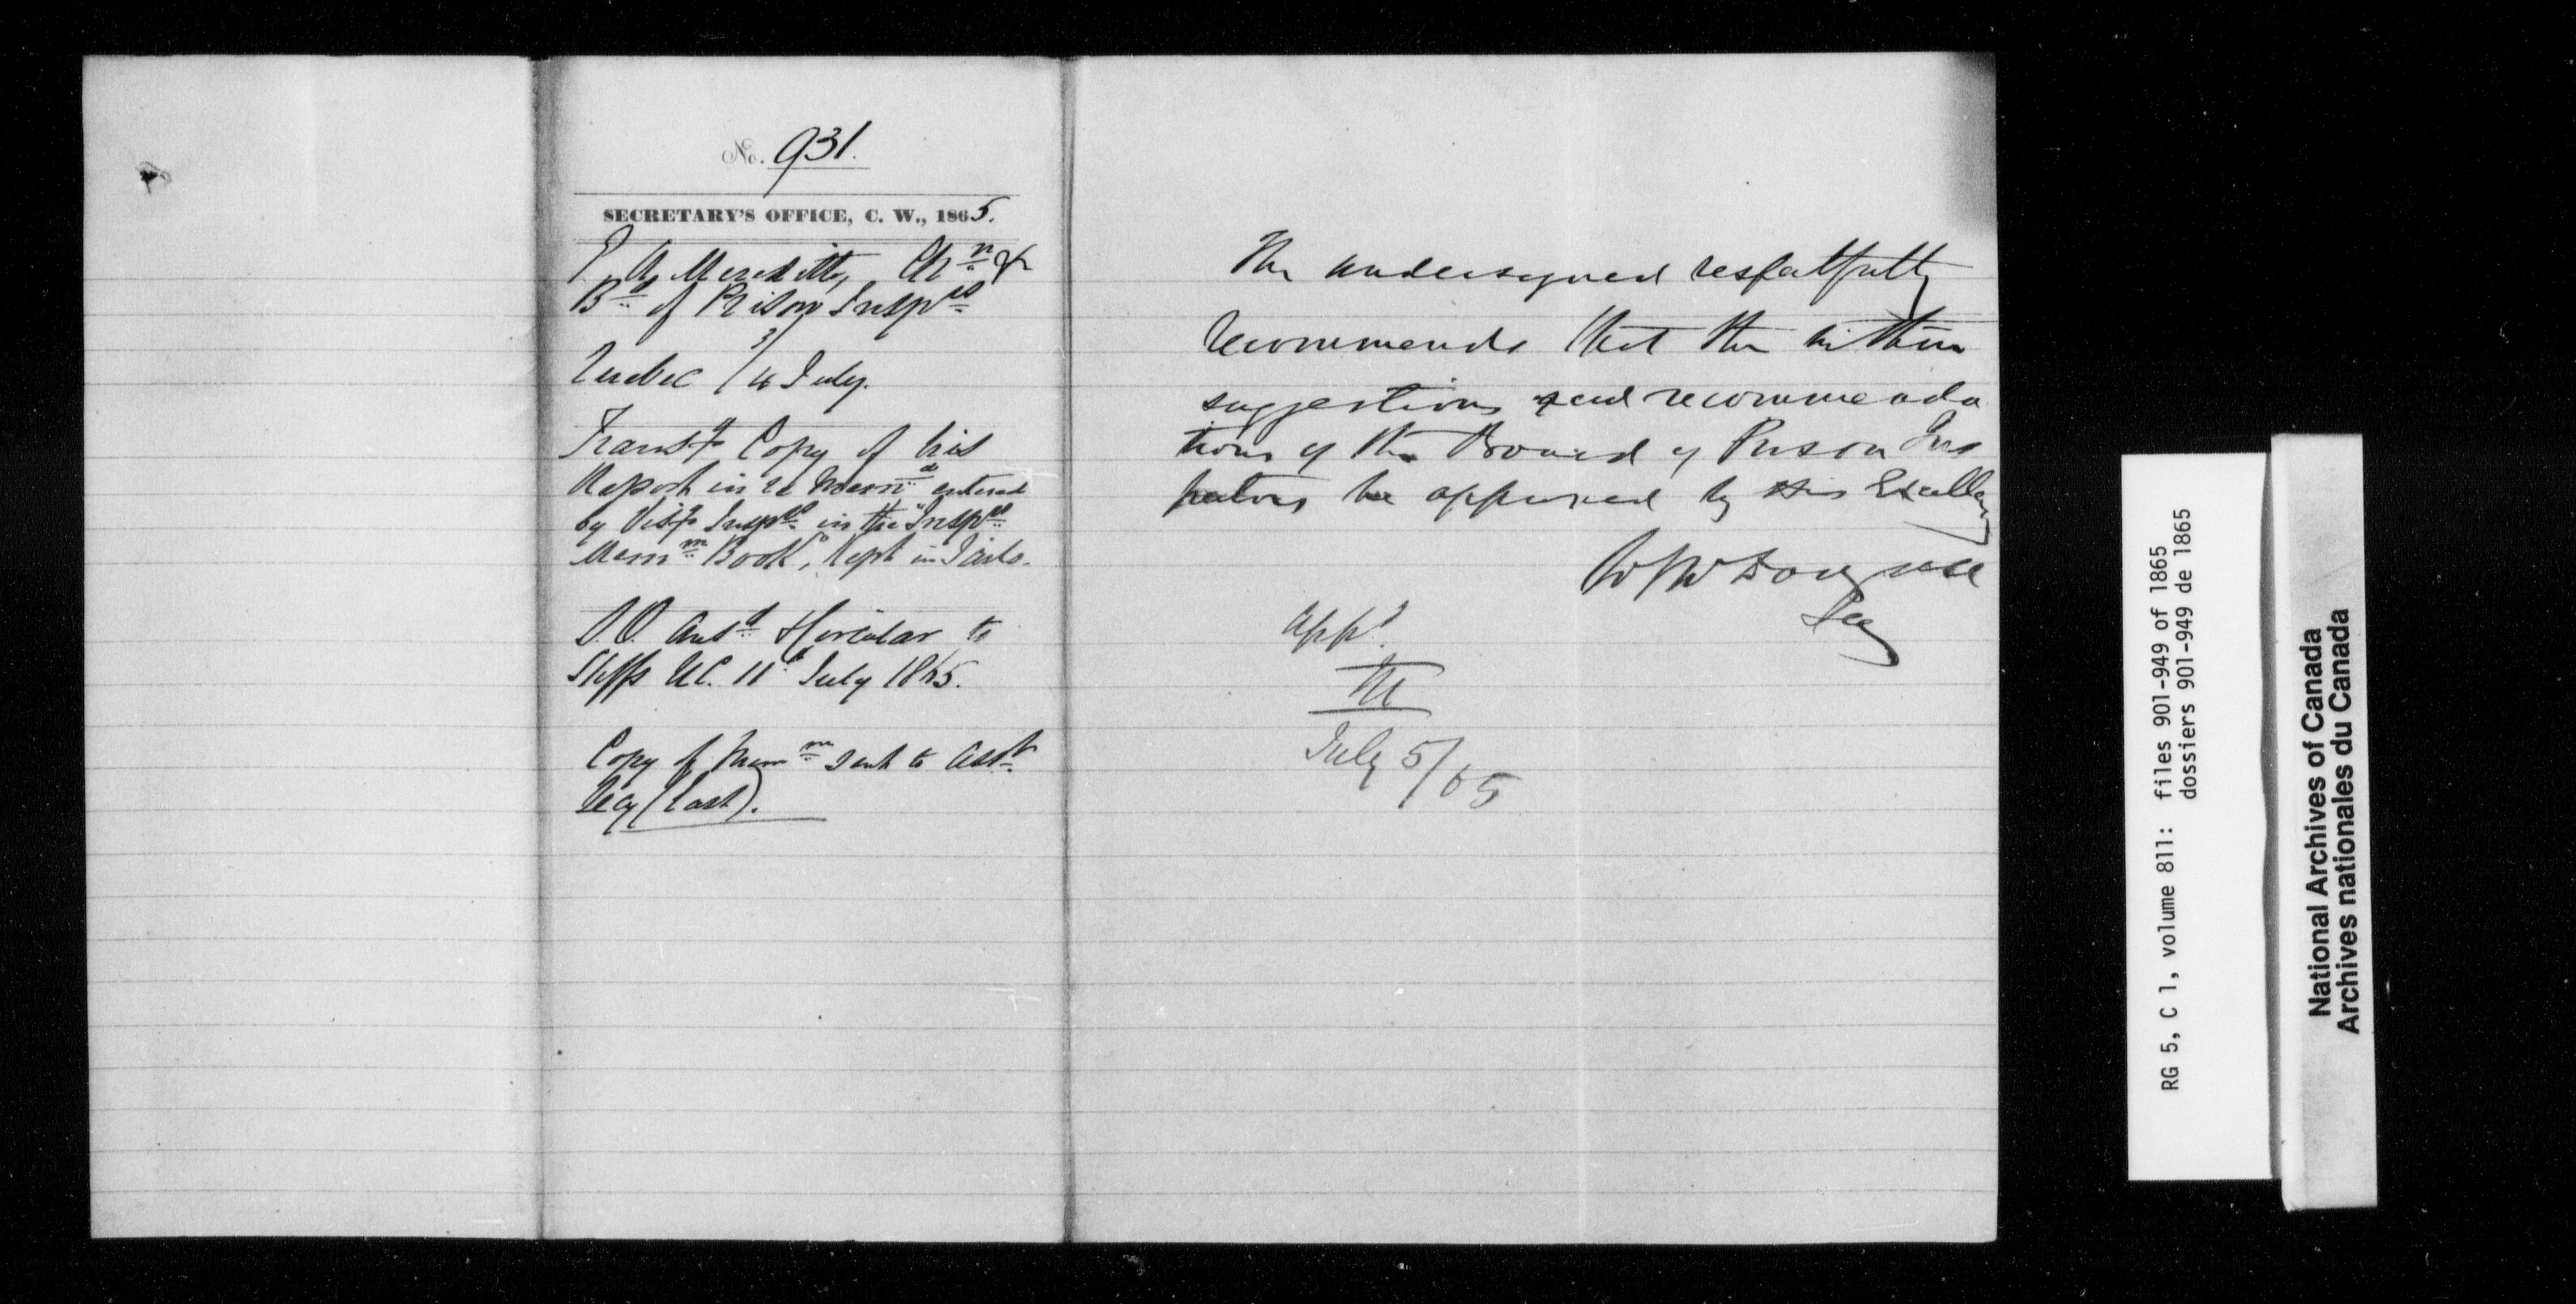 No. 931.
SECRETARY'S OFFICE, C. W., 1865.
E. A. Meredith, Chn
Bd of Prison Insprs
Quebec 3/4 July.
Transg Copy of his
Report in re Memda entered
by Visg Insprs in the "Insprs
Memm Book", kept in Gaols.
Ansd & Circular to
Shffs U.C. 11th July 1865.
Copy of Memm sent to Asst
Secy (East).
The undersigned respectfully
recommends that the within
suggestions and recommenda
tions of the Board of Prison Ins
pectors be approved by His Excellency
W McDougall
Secy
Appd
M
July 5/65
RG 5, C 1, volume 811: files 901-949 of 1865
dossiers 901-949 de 1865
National Archives of Canada
Archives nationales du Canada